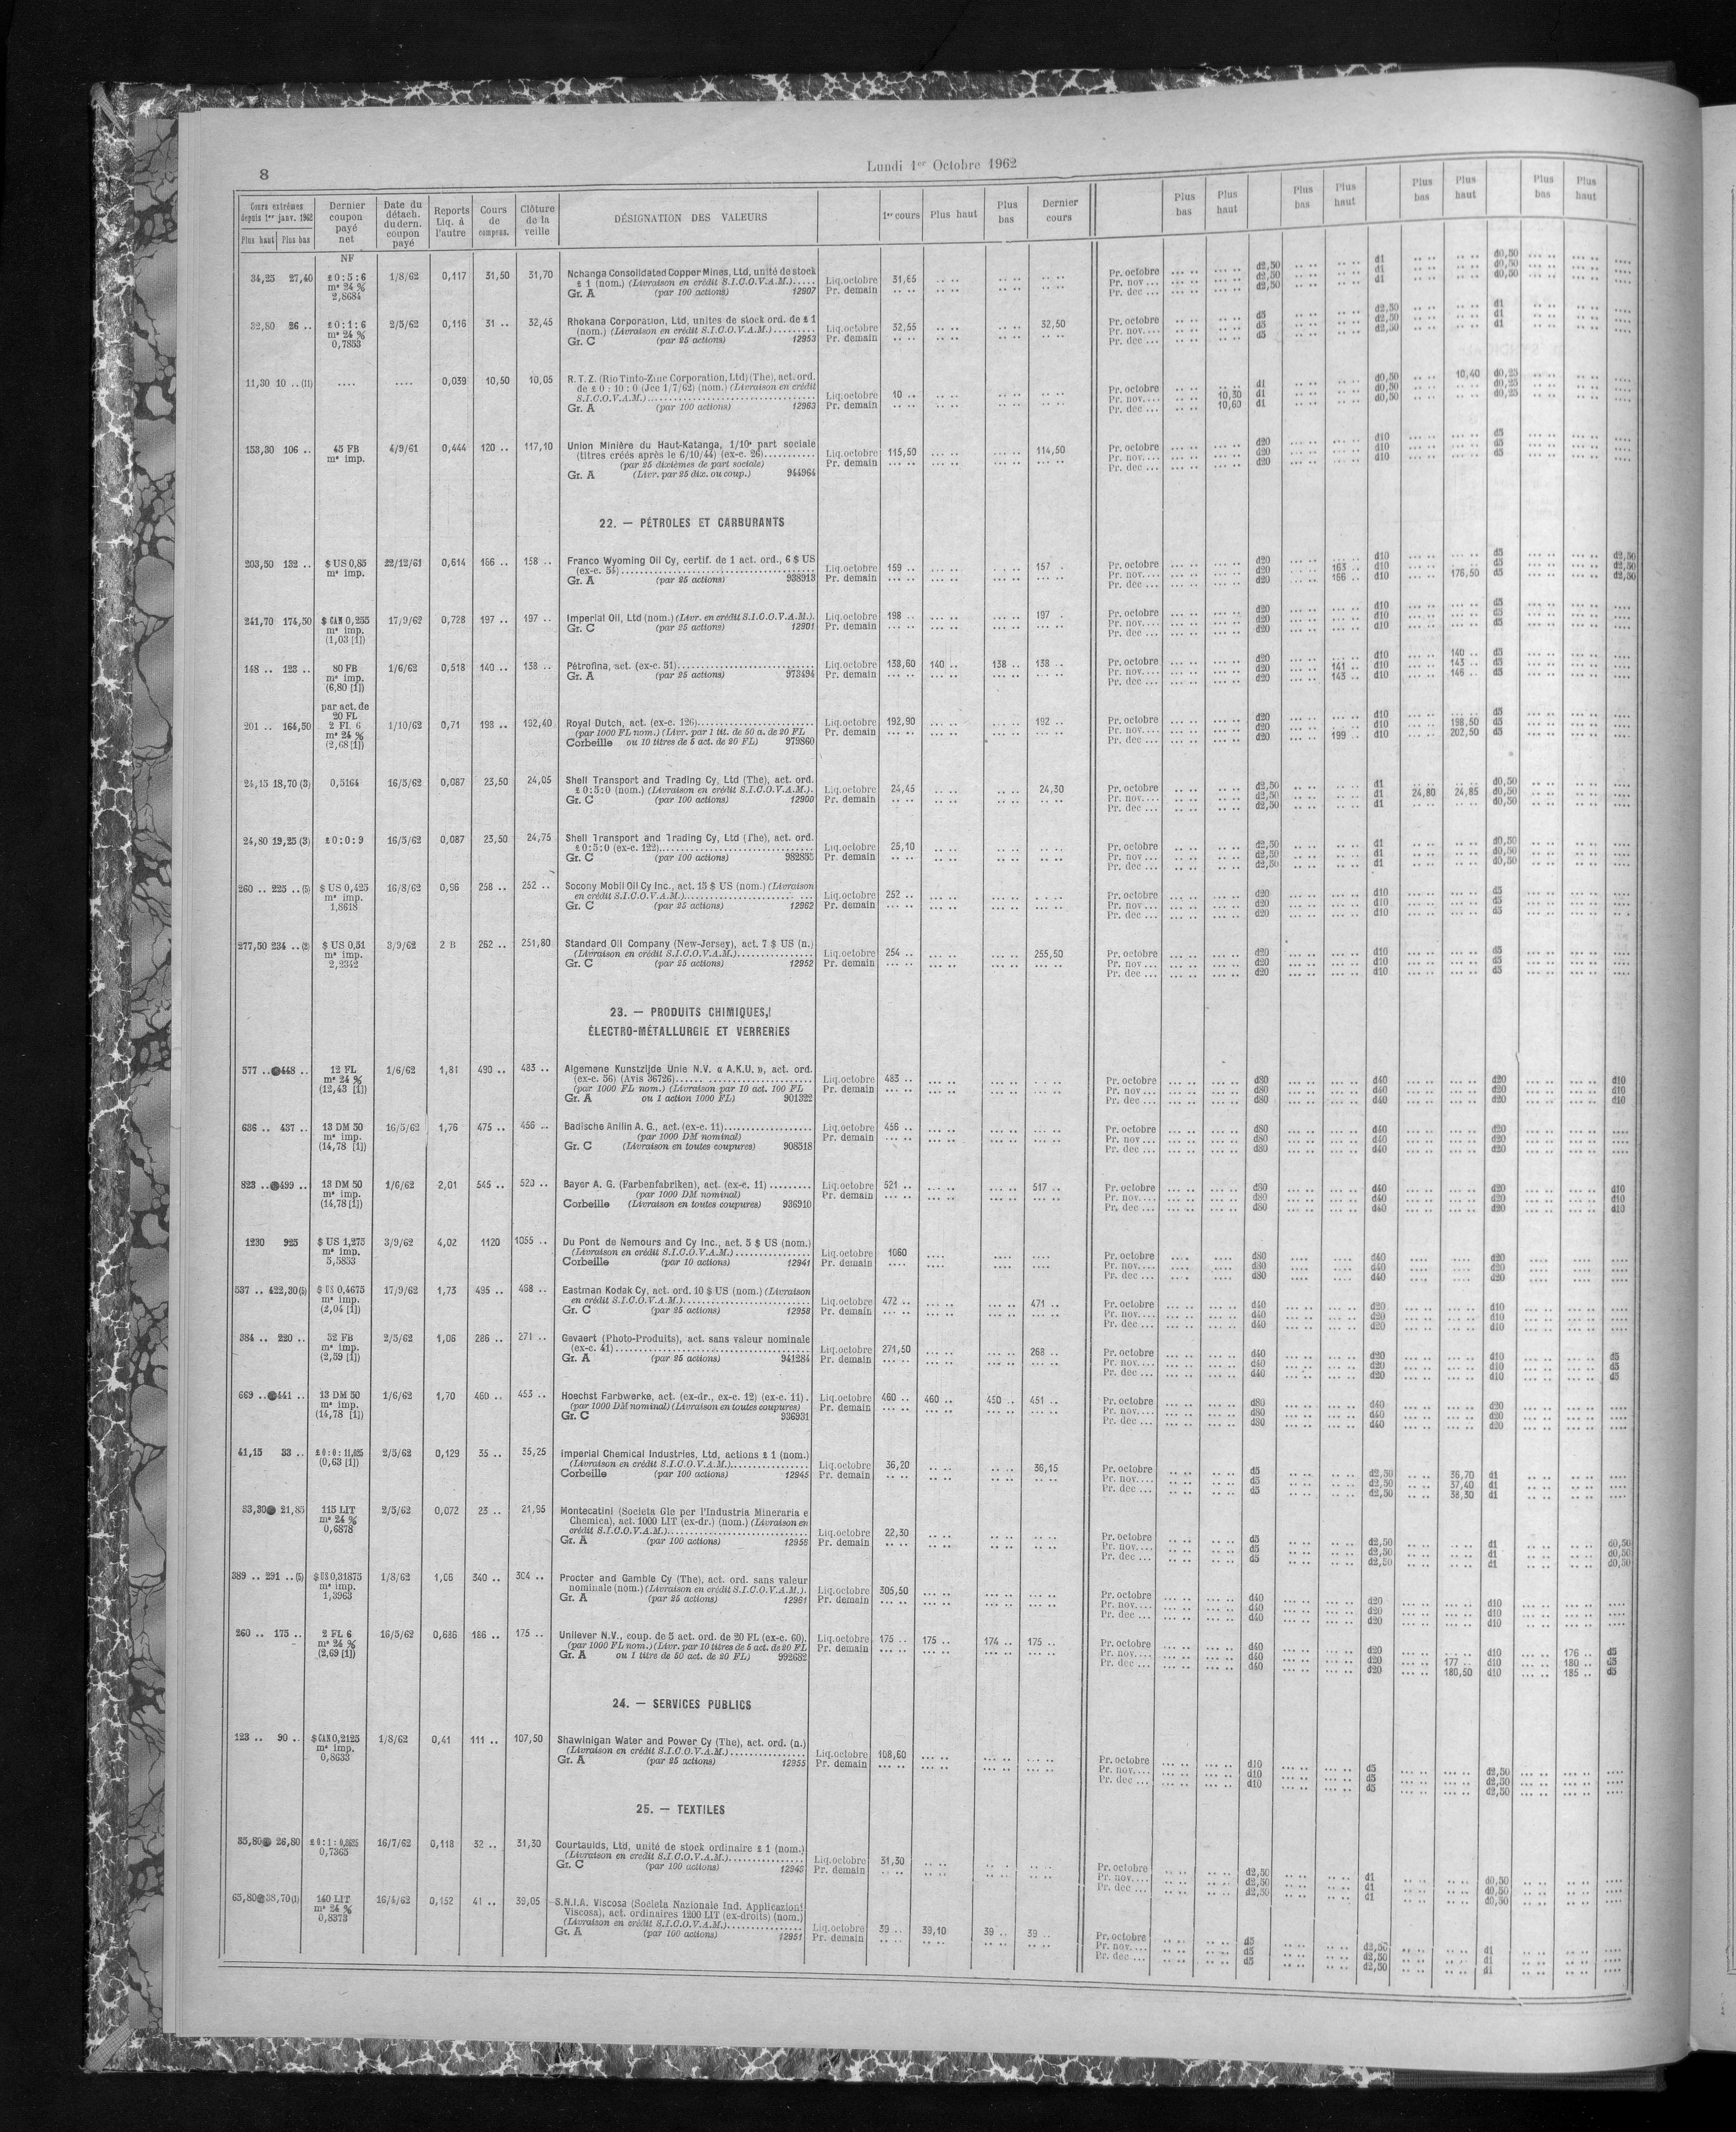 8
Lundi 1er Octobre 1962
Cours extrêmes depuis 1er janv. 1962 | Dernier coupon payé net | Date du détach. du dern. coupon payé | Reports Liq. à l'autre | Cours de compens. | Clôture de la veille | DÉSIGNATION DES VALEURS | 1er cours | Plus haut | Plus bas | Dernier cours | Plus bas | Plus haut | Plus bas | Plus haut | Plus bas | Plus haut | Plus bas | Plus haut
Plus haut | Plus bas
NF
34,25 27,40 £ 0 : 5 : 6 1/8/62 0,117 31,50 31,70 Nchanga Consolidated Copper Mines, Ltd, unité de stock
m* 24 % £ 1 (nom.) (Livraison en crédit S.I.C.O.V.A.M.)..... Liq. octobre 31,65 Pr. octobre d2,50 d1 d0,50
2,8684 Gr. A (par 100 actions) 12907 Pr. demain Pr. nov... d2,50 d1 d0,50
Pr. dec ... d2,50 d1 d0,50
32,80 26 .. £ 0 : 1 : 6 2/5/62 0,116 31 .. 32,45 Rhokana Corporation, Ltd, unites de stock ord. de £ 1
m* 24 % (nom.) (Livraison en crédit S.I.C.O.V.A.M.)......... Liq. octobre 32,55 32,50 Pr. octobre d5 d2,50 d1
0,7853 Gr. C (par 25 actions) 12953 Pr. demain Pr. nov.... d5 d2,50 d1
Pr. dec ... d5 d2,50 d1
11,30 10 .. (11) .... .... 0,039 10,50 10,05 R.T.Z. (Rio Tinto-Zinc Corporation, Ltd) (The), act. ord.
de £ 0 : 10 : 0 (Jce 1/7/62) (nom.) (Livraison en crédit
S.I.C.O.V.A.M.)..... Liq. octobre 10 .. Pr. octobre d1 d0,50 10,40 d0,25
Gr. A (par 100 actions) 12963 Pr. demain Pr. nov.... 10,30 d1 d0,50 d0,25
Pr. dec ... 10,60 d1 d0,50 d0,25
153,30 106 .. 45 FB 4/9/61 0,444 120 .. 117,10 Union Minière du Haut-Katanga, 1/10e part sociale
m* imp. (titres créés après le 6/10/44) (ex-c. 26)........... Liq. octobre 115,50 114,50 Pr. octobre d20 d10 d5
(par 25 dixièmes de part sociale) Pr. demain Pr. nov.... d20 d10 d5
Gr. A (Livr. par 25 dix. ou coup.) 944964 Pr. dec ... d20 d10 d5
22. — PÉTROLES ET CARBURANTS
203,50 132 .. $ US 0,85 22/12/61 0,614 166 .. 158 .. Franco Wyoming Oil Cy, certif. de 1 act. ord., 6 $ US
m* imp. (ex-c. 54)..... Liq. octobre 159 .. 157 . Pr. octobre d20 d10 d5 d2,50
Gr. A (par 25 actions) 938913 Pr. demain Pr. nov.... d20 163 .. d10 d5 d2,50
Pr. dec ... d20 166 .. d10 176,50 d5 d2,50
241,70 174,50 $ CAN 0,255 17/9/62 0,728 197 .. 197 .. Imperial Oil, Ltd (nom.) (Livr. en crédit S.I.C.O.V.A.M.). Liq. octobre 198 .. 197 . Pr. octobre d20 d10 d5
m* imp. Gr. C (par 25 actions) 12901 Pr. demain Pr. nov.... d20 d10 d5
(1,03 [1]) Pr. dec ... d20 d10 d5
148 .. 123 .. 80 FB 1/6/62 0,518 140 .. 138 .. Pétrofina, act. (ex-c. 51)..... Liq. octobre 138,60 140 .. 138 .. 138 .. Pr. octobre d20 d10 140 .. d5
m* imp. Gr. A (par 25 actions) 973494 Pr. demain Pr. nov.... d20 141 .. d10 143 .. d5
(6,80 [1]) Pr. dec ... d20 143 .. d10 146 .. d5
par act. de
20 FL
201 .. 164,50 2 FL 6 1/10/62 0,71 193 .. 192,40 Royal Dutch, act. (ex-c. 126)..... Liq. octobre 192,90 192 .. Pr. octobre d20 d10 d5
m* 24 % (par 1000 FL nom.) (Livr. par 1 tit. de 50 a. de 20 FL Pr. demain Pr. nov.... d20 d10 198,50 d5
(2,68 [1]) Corbeille ou 10 titres de 5 act. de 20 FL) 979860 Pr. dec ... d20 199 .. d10 202,50 d5
24,15 18,70 (3) 0,5164 16/5/62 0,087 23,50 24,05 Shell Transport and Trading Cy, Ltd (The), act. ord.
£ 0 : 5 : 0 (nom.) (Livraison en crédit S.I.C.O.V.A.M.). Liq. octobre 24,45 24,30 Pr. octobre d2,50 d1 d0,50
Gr. C (par 100 actions) 12900 Pr. demain Pr. nov.... d2,50 d1 24,80 24,85 d0,50
Pr. dec ... d2,50 d1 d0,50
24,80 19,25 (3) £ 0 : 0 : 9 16/5/62 0,087 23,50 24,75 Shell Transport and Trading Cy, Ltd (The), act. ord.
£ 0 : 5 : 0 (ex-c. 122)..... Liq. octobre 25,10 Pr. octobre d2,50 d1 d0,50
Gr. C (par 100 actions) 982855 Pr. demain Pr. nov ... d2,50 d1 d0,50
Pr. dec ... d2,50 d1 d0,50
260 .. 225 .. (5) $ US 0,425 16/8/62 0,96 258 .. 252 .. Socony Mobil Oil Cy Inc., act. 15 $ US (nom.) (Livraison
m* imp. en crédit S.I.C.O.V.A.M.)..... Liq. octobre 252 .. Pr. octobre d20 d10 d5
1,8618 Gr. C (par 25 actions) 12962 Pr. demain Pr. nov ... d20 d10 d5
Pr. dec ... d20 d10 d5
277,50 234 .. (2) $ US 0,51 3/9/62 2 B 262 .. 251,80 Standard Oil Company (New-Jersey), act. 7 $ US (n.)
m* imp. (Livraison en crédit S.I.C.O.V.A.M.)..... Liq. octobre 254 .. 255,50 Pr. octobre d20 d10 d5
2,2342 Gr. C (par 25 actions) 12952 Pr. demain Pr. nov ... d20 d10 d5
Pr. dec ... d20 d10 d5
23. — PRODUITS CHIMIQUES,
ÉLECTRO-MÉTALLURGIE ET VERRERIES
577 .. 448 .. 12 FL 1/6/62 1,81 490 .. 483 .. Algemene Kunstzijde Unie N.V. « A.K.U. », act. ord.
m* 24 % (ex-c. 56) (Avis 36726)..... Liq. octobre 483 .. Pr. octobre d80 d40 d20 d10
(12,43 [1]) (par 1000 FL nom.) (Livraison par 10 act. 100 FL Pr. demain Pr. nov ... d80 d40 d20 d10
Gr. A ou 1 action 1000 FL) 901322 Pr. dec ... d80 d40 d20 d10
636 .. 437 .. 13 DM 50 16/5/62 1,76 475 .. 456 .. Badische Anilin A. G., act. (ex-c. 11)..... Liq. octobre 456 .. Pr. octobre d80 d40 d20
m* imp. (par 1000 DM nominal) Pr. demain Pr. nov ... d80 d40 d20
(14,78 [1]) Gr. C (Livraison en toutes coupures) 908518 Pr. dec ... d80 d40 d20
823 .. 499 .. 13 DM 50 1/6/62 2,01 545 .. 520 .. Bayer A. G. (Farbenfabriken), act. (ex-c. 11) ......... Liq. octobre 521 .. 517 .. Pr. octobre d80 d40 d20 d10
m* imp. (par 1000 DM nominal) Pr. demain Pr. nov.... d80 d40 d20 d10
(14,78 [1]) Corbeille (Livraison en toutes coupures) 936910 Pr. dec ... d80 d40 d20 d10
1230 925 $ US 1,275 3/9/62 4,02 1120 1055 .. Du Pont de Nemours and Cy Inc., act. 5 $ US (nom.)
m* imp. (Livraison en crédit S.I.C.O.V.A.M.) ............... Liq. octobre 1060 Pr. octobre d80 d40 d20
5,5853 Corbeille (par 10 actions) 12941 Pr. demain Pr. nov.... d80 d40 d20
Pr. dec ... d80 d40 d20
537 .. 422,30 (5) $ US 0,4675 17/9/62 1,73 495 .. 468 .. Eastman Kodak Cy, act. ord. 10 $ US (nom.) (Livraison
m* imp. en crédit S.I.C.O.V.A.M.)..... Liq. octobre 472 .. 471 .. Pr. octobre d40 d20 d10
(2,04 [1]) Gr. C (par 25 actions) 12958 Pr. demain Pr. nov.... d40 d20 d10
Pr. dec ... d40 d20 d10
384 .. 220 .. 32 FB 2/5/62 1,06 286 .. 271 .. Gevaert (Photo-Produits), act. sans valeur nominale
m* imp. (ex-c. 41)..... Liq. octobre 271,50 268 .. Pr. octobre d40 d20 d10 d5
(2,59 [1]) Gr. A (par 25 actions) 941284 Pr. demain Pr. nov.... d40 d20 d10 d5
Pr. dec ... d40 d20 d10 d5
669 .. 441 .. 13 DM 50 1/6/62 1,70 460 .. 453 .. Hoechst Farbwerke, act. (ex-dr., ex-c. 12) (ex-c. 11). Liq. octobre 460 .. 460 .. 450 .. 451 .. Pr. octobre d80 d40 d20
m* imp. (par 1000 DM nominal) (Livraison en toutes coupures) Pr. demain Pr. nov.... d80 d40 d20
(14,78 [1]) Gr. C 936931 Pr. dec ... d80 d40 d20
41,15 33 .. £ 0 : 0 : 11,025 2/5/62 0,129 35 .. 35,25 Imperial Chemical Industries, Ltd, actions £ 1 (nom.)
(0,63 [1]) (Livraison en crédit S.I.C.O.V.A.M.)..... Liq. octobre 36,20 36,15 Pr. octobre d5 d2,50 36,70 d1
Corbeille (par 100 actions) 12945 Pr. demain Pr. nov.... d5 d2,50 37,40 d1
Pr. dec ... d5 d2,50 38,30 d1
33,30 21,85 115 LIT 2/5/62 0,072 23 .. 21,95 Montecatini (Societa Gle per l'Industria Mineraria e
m* 24 % Chemica), act. 1000 LIT (ex-dr.) (nom.) (Livraison en
0,6878 crédit S.I.C.O.V.A.M.)..... Liq. octobre 22,30 Pr. octobre d5 d2,50 d1 d0,50
Gr. A (par 100 actions) 12956 Pr. demain Pr. nov.... d5 d2,50 d1 d0,50
Pr. dec ... d5 d2,50 d1 d0,50
389 .. 291 .. (5) $ US 0,31875 1/8/62 1,06 340 .. 304 .. Procter and Gamble Cy (The), act. ord. sans valeur
m* imp. nominale (nom.) (Livraison en crédit S.I.C.O.V.A.M.). Liq. octobre 305,50 Pr. octobre d40 d20 d10
1,3963 Gr. A (par 25 actions) 12961 Pr. demain Pr. nov.... d40 d20 d10
Pr. dec ... d40 d20 d10
260 .. 175 .. 2 FL 6 16/5/62 0,686 186 .. 175 .. Unilever N.V., coup. de 5 act. ord. de 20 FL (ex-c. 60). Liq. octobre 175 .. 175 .. 174 .. 175 .. Pr. octobre d40 d20 d10 176 .. d5
m* 24 % (par 1000 FL nom.) (Livr. par 10 titres de 5 act. de 20 FL Pr. demain Pr. nov.... d40 d20 177 .. d10 180 .. d5
(2,69 [1]) Gr. A ou 1 titre de 50 act. de 20 FL) 992682 Pr. dec ... d40 d20 180,50 d10 185 .. d5
24. — SERVICES PUBLICS
123 .. 90 .. $ CAN 0,2125 1/8/62 0,41 111 .. 107,50 Shawinigan Water and Power Cy (The), act. ord. (n.)
m* imp. (Livraison en crédit S.I.C.O.V.A.M.) ............... Liq. octobre 108,60 Pr. octobre d10 d5 d2,50
0,8633 Gr. A (par 25 actions) 12955 Pr. demain Pr. nov.... d10 d5 d2,50
Pr. dec ... d10 d5 d2,50
25. — TEXTILES
35,80 26,80 £ 0 : 1 : 0,8625 16/7/62 0,118 32 .. 31,30 Courtaulds, Ltd, unité de stock ordinaire £ 1 (nom.)
0,7365 (Livraison en crédit S.I.C.O.V.A.M.)..... Liq. octobre 31,30 Pr. octobre d2,50 d1 d0,50
Gr. C (par 100 actions) 12948 Pr. demain Pr. nov.... d2,50 d1 d0,50
Pr. dec ... d2,50 d1 d0,50
65,80 38,70 (1) 140 LIT 16/4/62 0,152 41 .. 39,05 S.N.I.A. Viscosa (Societa Nazionale Ind. Applicazioni
m* 24 % Viscosa), act. ordinaires 1200 LIT (ex-droits) (nom.)
0,8373 (Livraison en crédit S.I.C.O.V.A.M.)..... Liq. octobre 39 .. 39,10 39 .. 39 .. Pr. octobre d5 d2,50 d1
Gr. A (par 100 actions) 12951 Pr. demain Pr. nov.... d5 d2,50 d1
Pr. dec ... d5 d2,50 d1